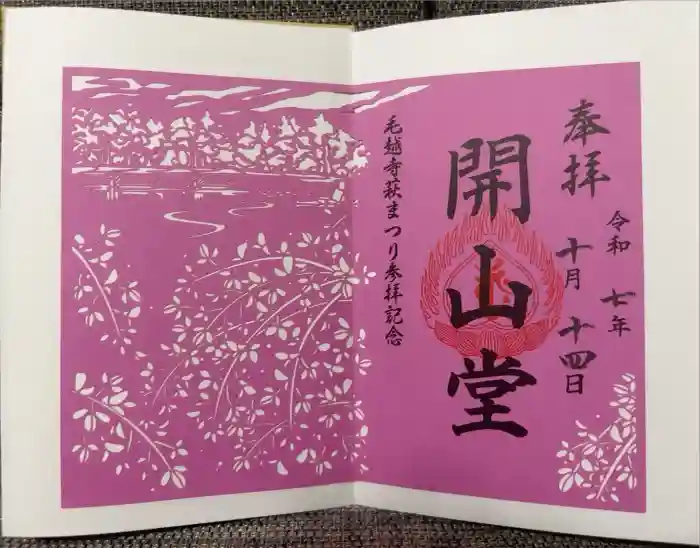 奉拝
令和 七年
十月 十四日
開山堂
毛越寺萩まつり参拝記念